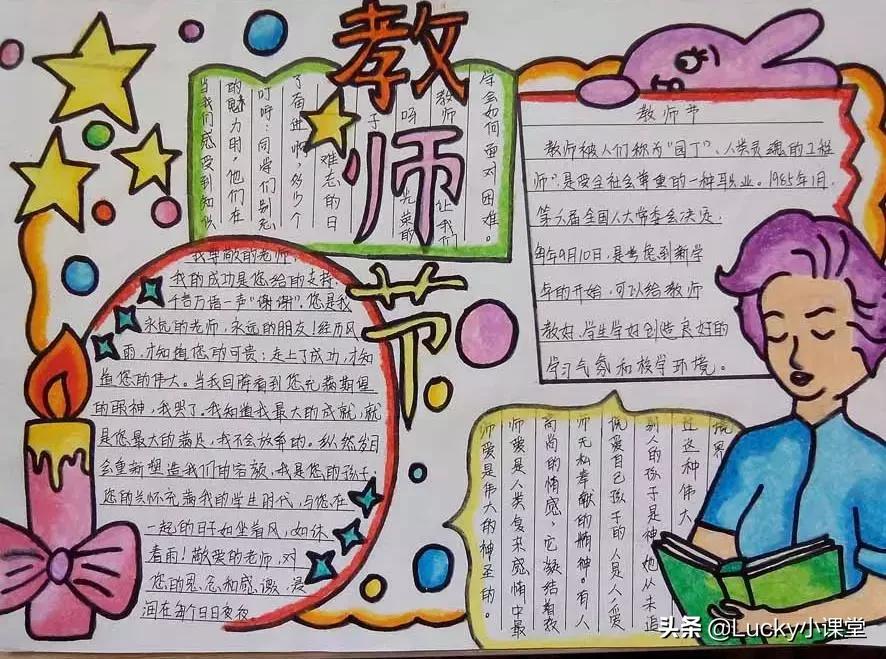 教师节
当我们感受到知识
的魅力时，他们在
叮咛：同学们别忘
了奋进啊，多少个
难忘的日
子
呀
教师
光荣的
让我们
学会如何面对困难。
教师节
教师被人们称为“园丁”、人类灵魂的工程
师”，是受全社会尊重的一种职业。1985年1月，
第六届全国人大常委会决定，
每年9月10日，是考虑到新学
年的开始，可以给教师
教好、学生学好创造良好的
学习气氛和校学环境。
我尊敬的老师
我的成功是您给的支持，
千言万语一声“谢谢”。您是我
永远的老师，永远的朋友！经历风
雨，才知道您的可贵；走上了成功，才知
道您的伟大。当我回眸看到您充满期望
的眼神，我哭了。我知道我最大的成就，就
是您最大的满足，我不会放弃的。纵然岁月
会重新塑造我们的容颜，我是您的孩子；
您的关怀充满我的学生时代，与您在
一起的日子如坐春风，如沐
春雨！敬爱的老师，对
您的思念和感激，浸
润在每个日日夜夜
师爱是伟大的神圣的。
师爱是人类复杂感情中最
高尚的情感，它凝结着教
师无私奉献的精神。有人
说爱自己孩子的人是人，爱
别人的孩子是神，她从未追
过这种伟大
境界
头条 @Lucky小课堂